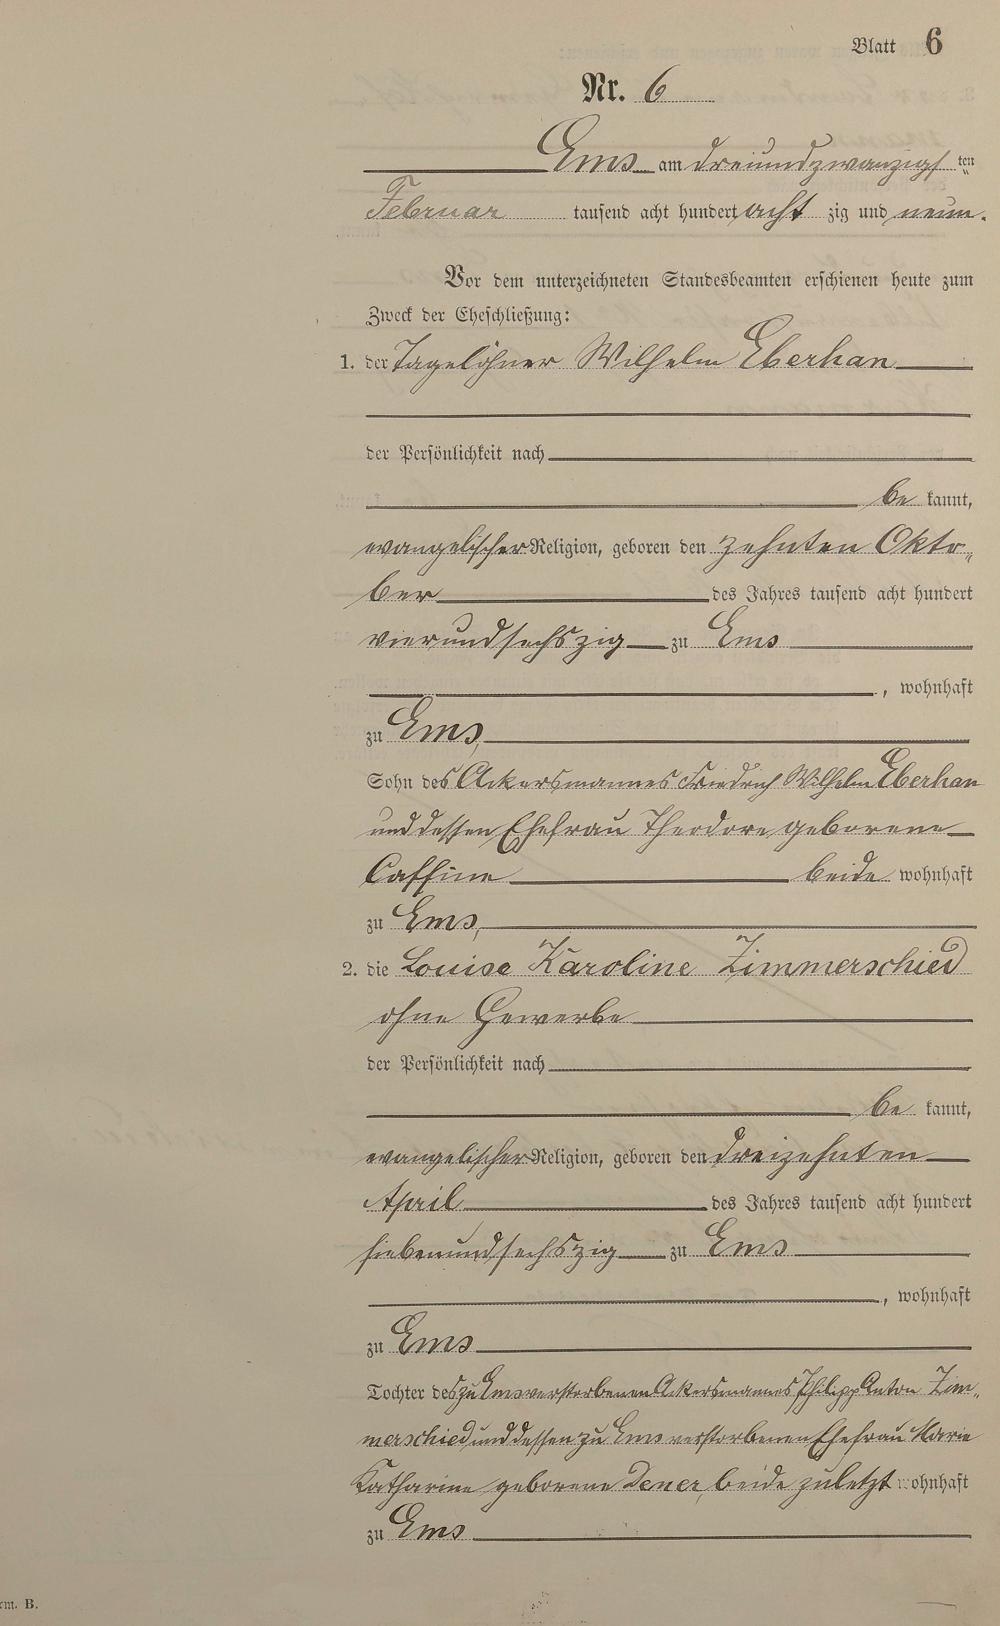 Blatt 6
Nr. 6
Ems am dreiundzwanzigsten
Februar tausend acht hundert acht zig und neun.
Vor dem unterzeichneten Standesbeamten erschienen heute zum
Zweck der Eheschließung:
1. der Tagelöhner Wilhelm Eberhan
der Persönlichkeit nach
be kannt,
evangelischer Religion, geboren den zehnten Okto„
ber des Jahres tausend acht hundert
vierundsechszig zu Ems
, wohnhaft
zu Ems,
Sohn des Ackersmannes Friedrich Wilhelm Eberhan
und dessen Ehefrau Theodore geborene
Caffine beide wohnhaft
zu Ems,
2. die Louise Karoline Zimmerschied
ohne Gewerbe
der Persönlichkeit nach
be kannt,
evangelischer Religion, geboren den dreizehnten
April des Jahres tausend acht hundert
siebenundsechszig zu Ems
, wohnhaft
zu Ems
Tochter des zu Ems verstorbenen Ackersmannes Philipp Anton Zim„
merschied und dessen zu Ems verstorbenen Ehefrau Marie
Katharine geborene Dener, beide zuletzt wohnhaft
zu Ems
rm. B.